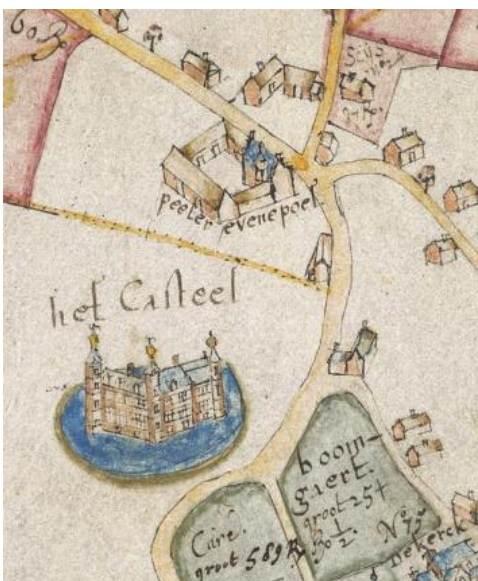 60 R
peeter evenpoel
het Casteel
boom-
gaert.
groot 25+
30 1/2
Care.
groot 589 R
No 75
De Kerck